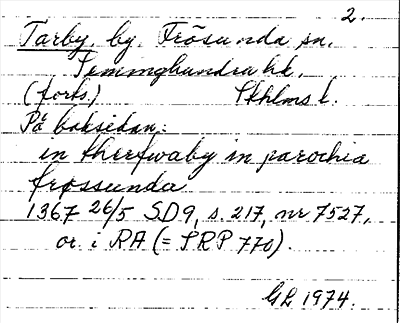 2.
Tarby, by, Frösunda sn,
Semminghundra hd,
(forts.) Sthlms l.
På baksidan:
in therfwaby in parochia
frøssunda
1367 26/5 SD9, s. 217, nr 7527,
or i RA (= SRP 770).
GL 1974.